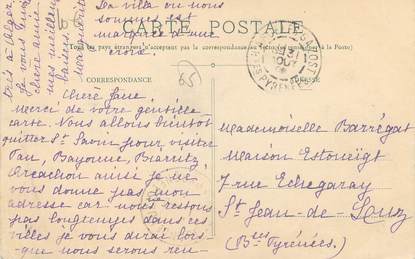 La villa ou nous
sommes est
marquée d'une
croix
CARTE POSTALE
Tous les pays étrangers n'acceptent pas la correspondance
à la Poste)
CORRESPONDANCE
ADRESSE
65
Chère Jane
Merci de votre gentille
carte. Nous allons bientôt
quitter St Savin pour visiter
Pau, Bayonne, Biarritz
Arcachon aussi je ne
vous donne pas mon
adresse car nous restons
pas longtemps dans ces
villes je vous dirai lors-
que nous serons ren-
Mademoiselle Barrégat
Maison
7 rue Echegaray
St Jean-de-Luz
(Bses Pyrénées)
trés à Alger
je vous
chère amie
mes meilleurs
baisers